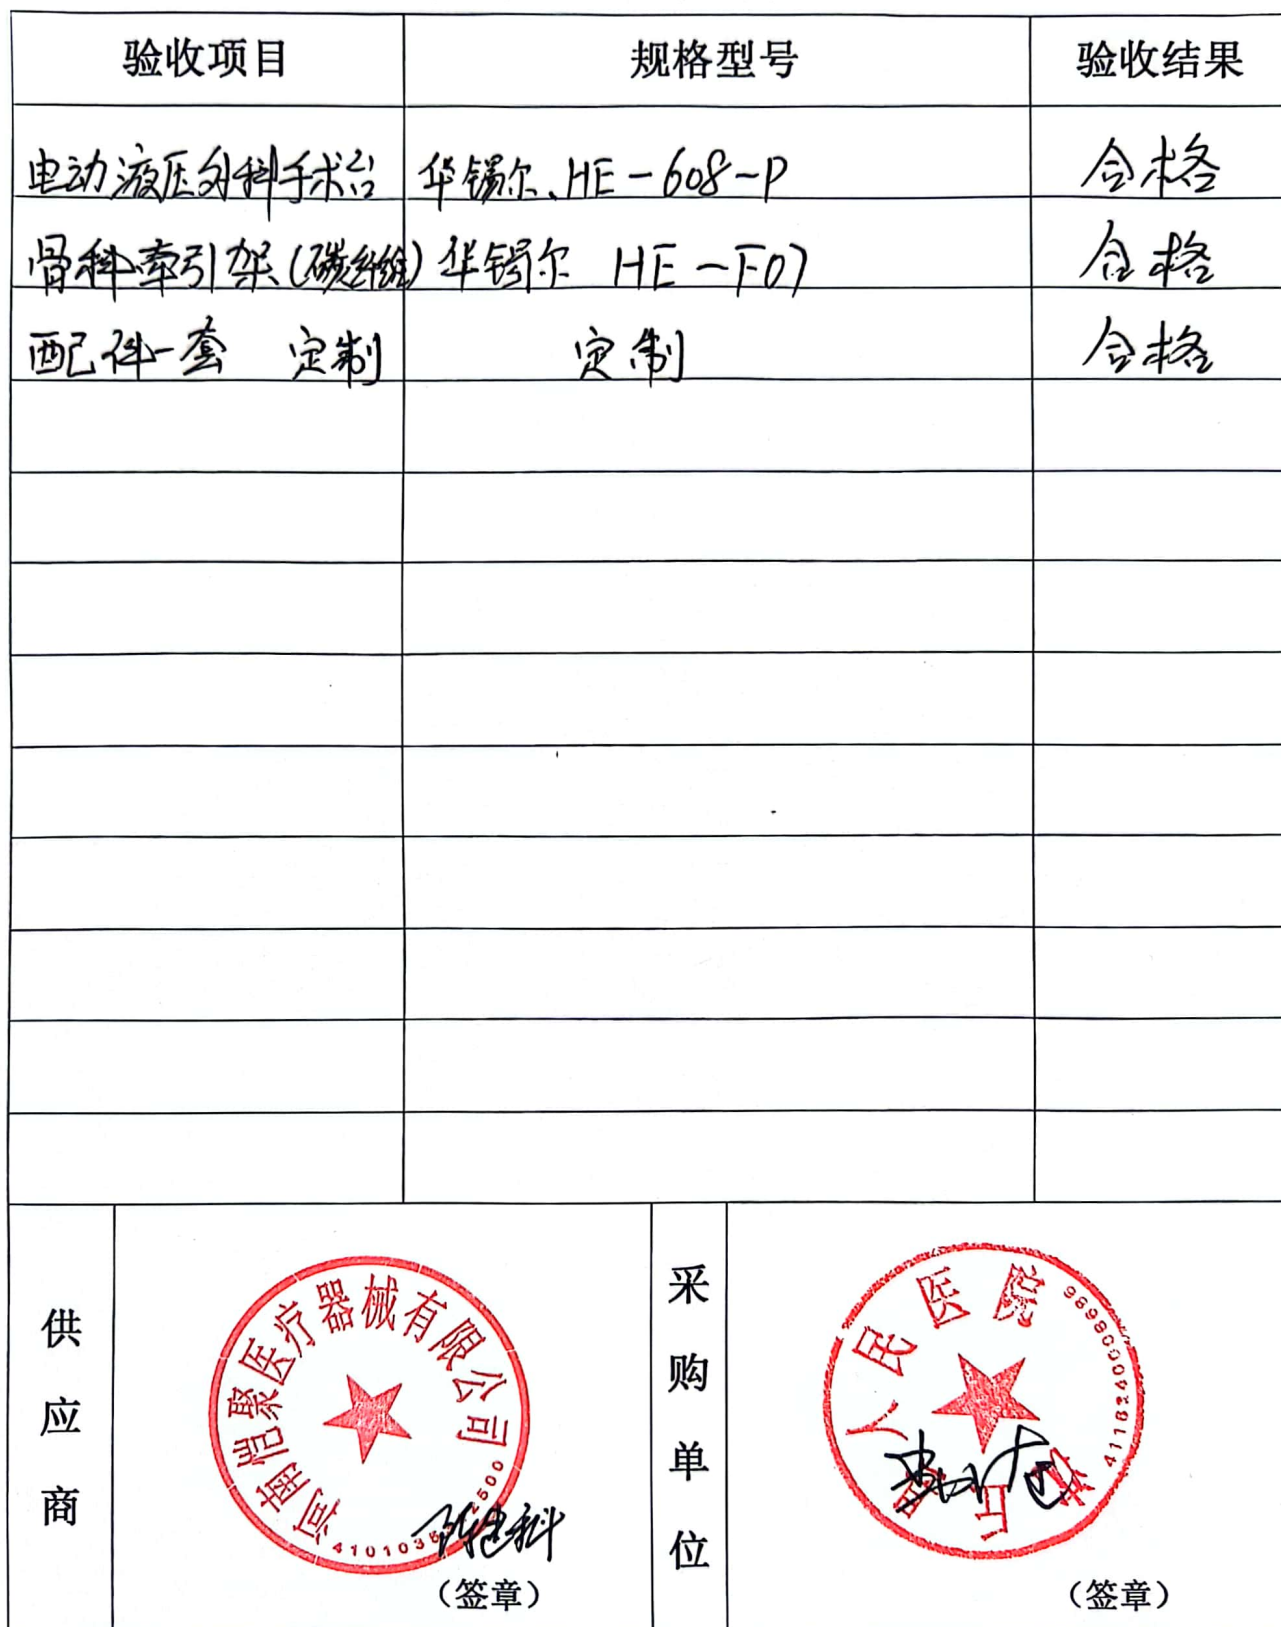 验收项目 规格型号 验收结果
电动液压外科手术台 华锡尔、HE-608-P 合格
骨科牵引架(碳纤维) 华锡尔 HE-F07 合格
配件一套 定制 定制 合格
供应商
河南偕聚医疗器械有限公司
4101035 2500
(签章)
采购单位
人民医院
(签章)